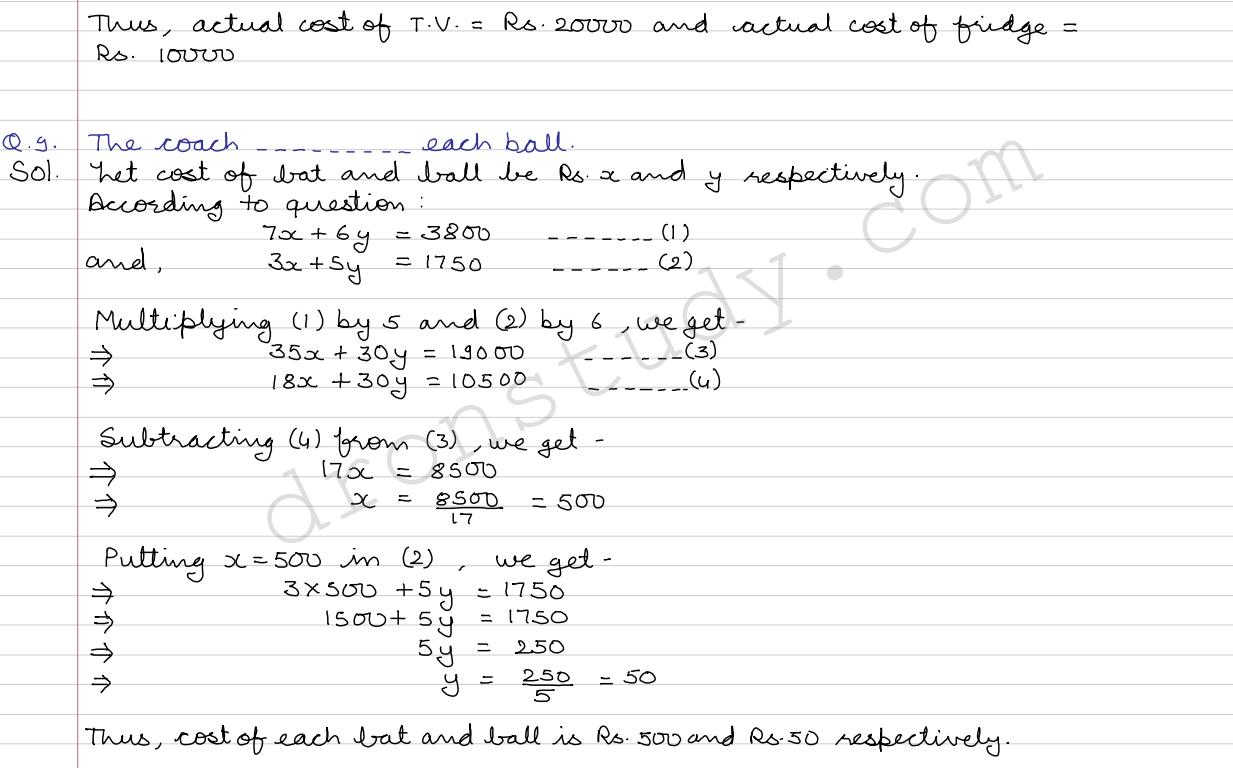 Thus, actual cost of T.V. = Rs. 20000 and actual cost of fridge =
Rs. 10000
Q.9. The coach _ _ _ _ _ _ _ _ _ each ball.
Sol. Let cost of bat and ball be Rs. x and y respectively.
According to question :
7x + 6y = 3800 _ _ _ _ _ _ _ (1)
and, 3x + 5y = 1750 _ _ _ _ _ _ (2)
Multiplying (1) by 5 and (2) by 6, we get -
⇒ 35x + 30y = 19000 _ _ _ _ _ _ (3)
⇒ 18x + 30y = 10500 _ _ _ _ _ _ (4)
Subtracting (4) from (3), we get -
⇒ 17x = 8500
⇒ x = 8500/17 = 500
Putting x = 500 in (2), we get -
⇒ 3 × 500 + 5y = 1750
⇒ 1500 + 5y = 1750
⇒ 5y = 250
⇒ y = 250/5 = 50
Thus, cost of each bat and ball is Rs. 500 and Rs. 50 respectively.
dronstudy.com